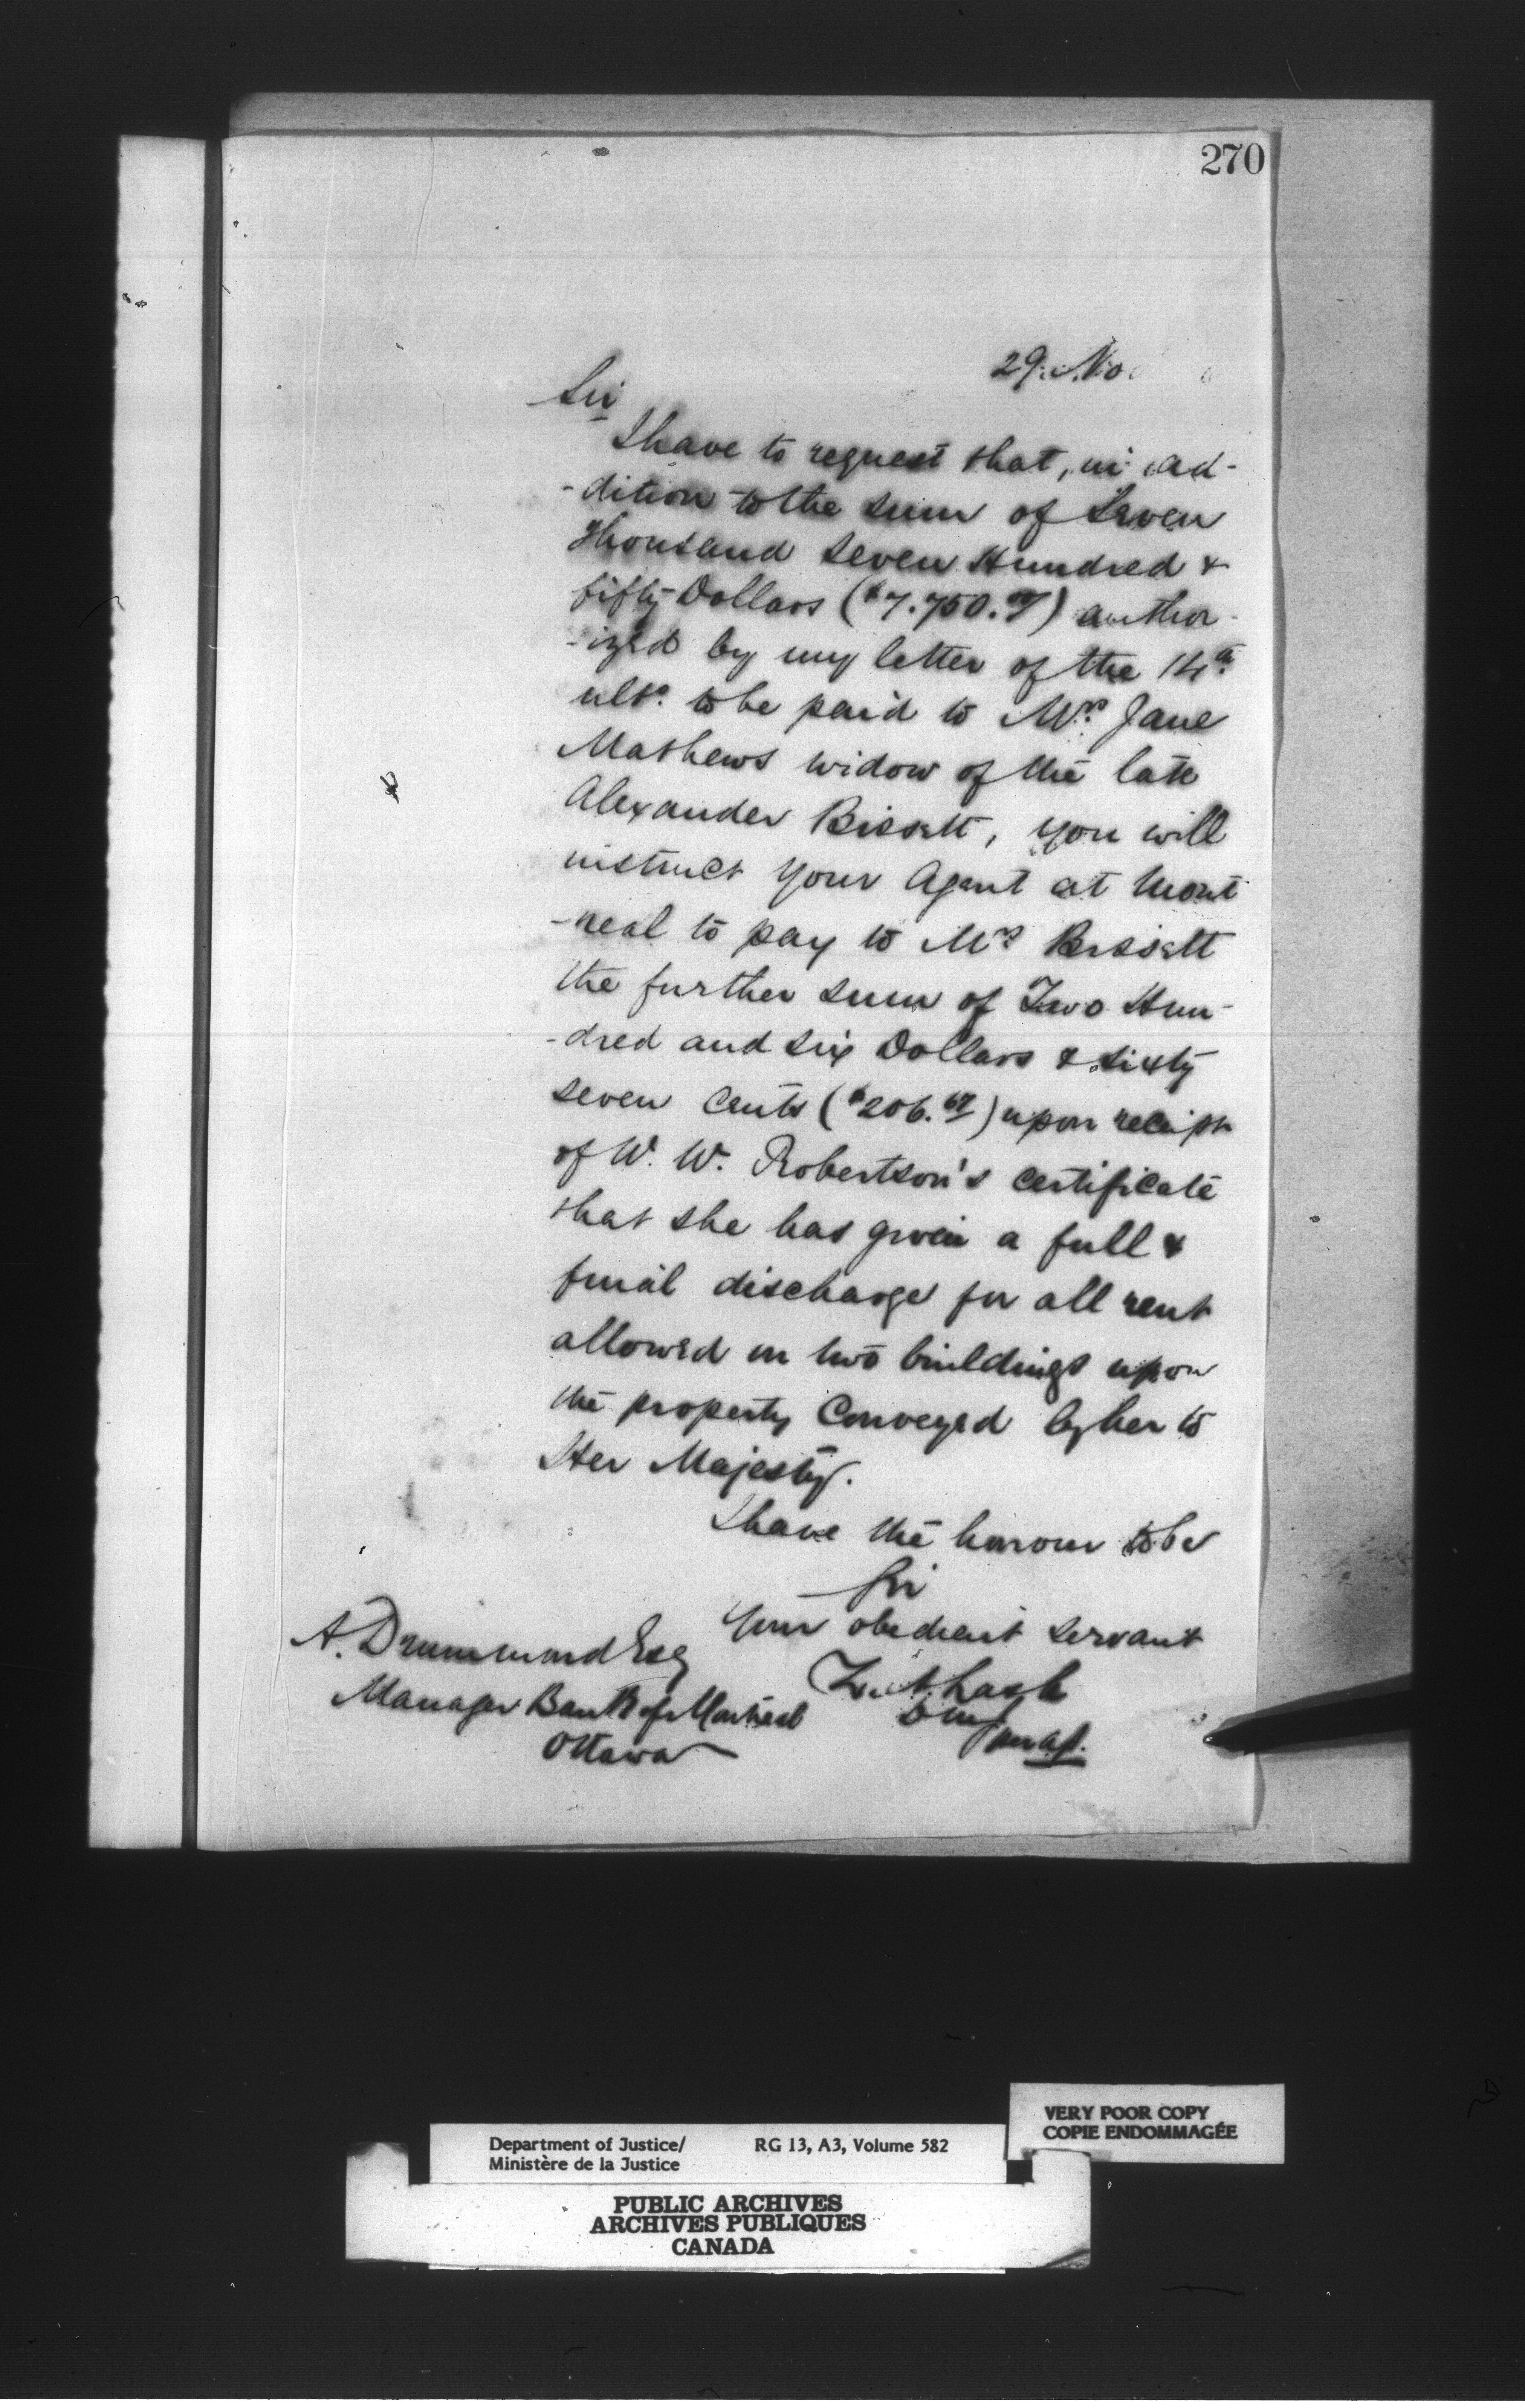 270
29. Nov
Sir
I have to request that, in ad-
-dition to the sum of Seven
Thousand Seven Hundred &
fifty Dollars ($7.750.00) author-
-ized by my letter of the 14th
ulto. to be paid to Mrs. Jane
Mathews widow of the late
Alexander Bissett, you will
instruct your Agent at Mont
-real to pay to Mrs Bissett
the further sum of Two Hun-
-dred and six Dollars & sixty
seven Cents ($206.67) upon receipt
of W. W. Robertson's certificate
that she has given a full &
final discharge for all rent
allowed on two buildings upon
the property Conveyed by her to
Her Majesty.
I have the honour to be
Sir
Your obedient servant
Z. A. Lash
DMJ
per A.P.
A. Drummond Esq
Manager Bank of Montreal
Ottawa
VERY POOR COPY
COPIE ENDOMMAGÉE
Department of Justice/ RG 13, A3, Volume 582
Ministère de la Justice
PUBLIC ARCHIVES
ARCHIVES PUBLIQUES
CANADA